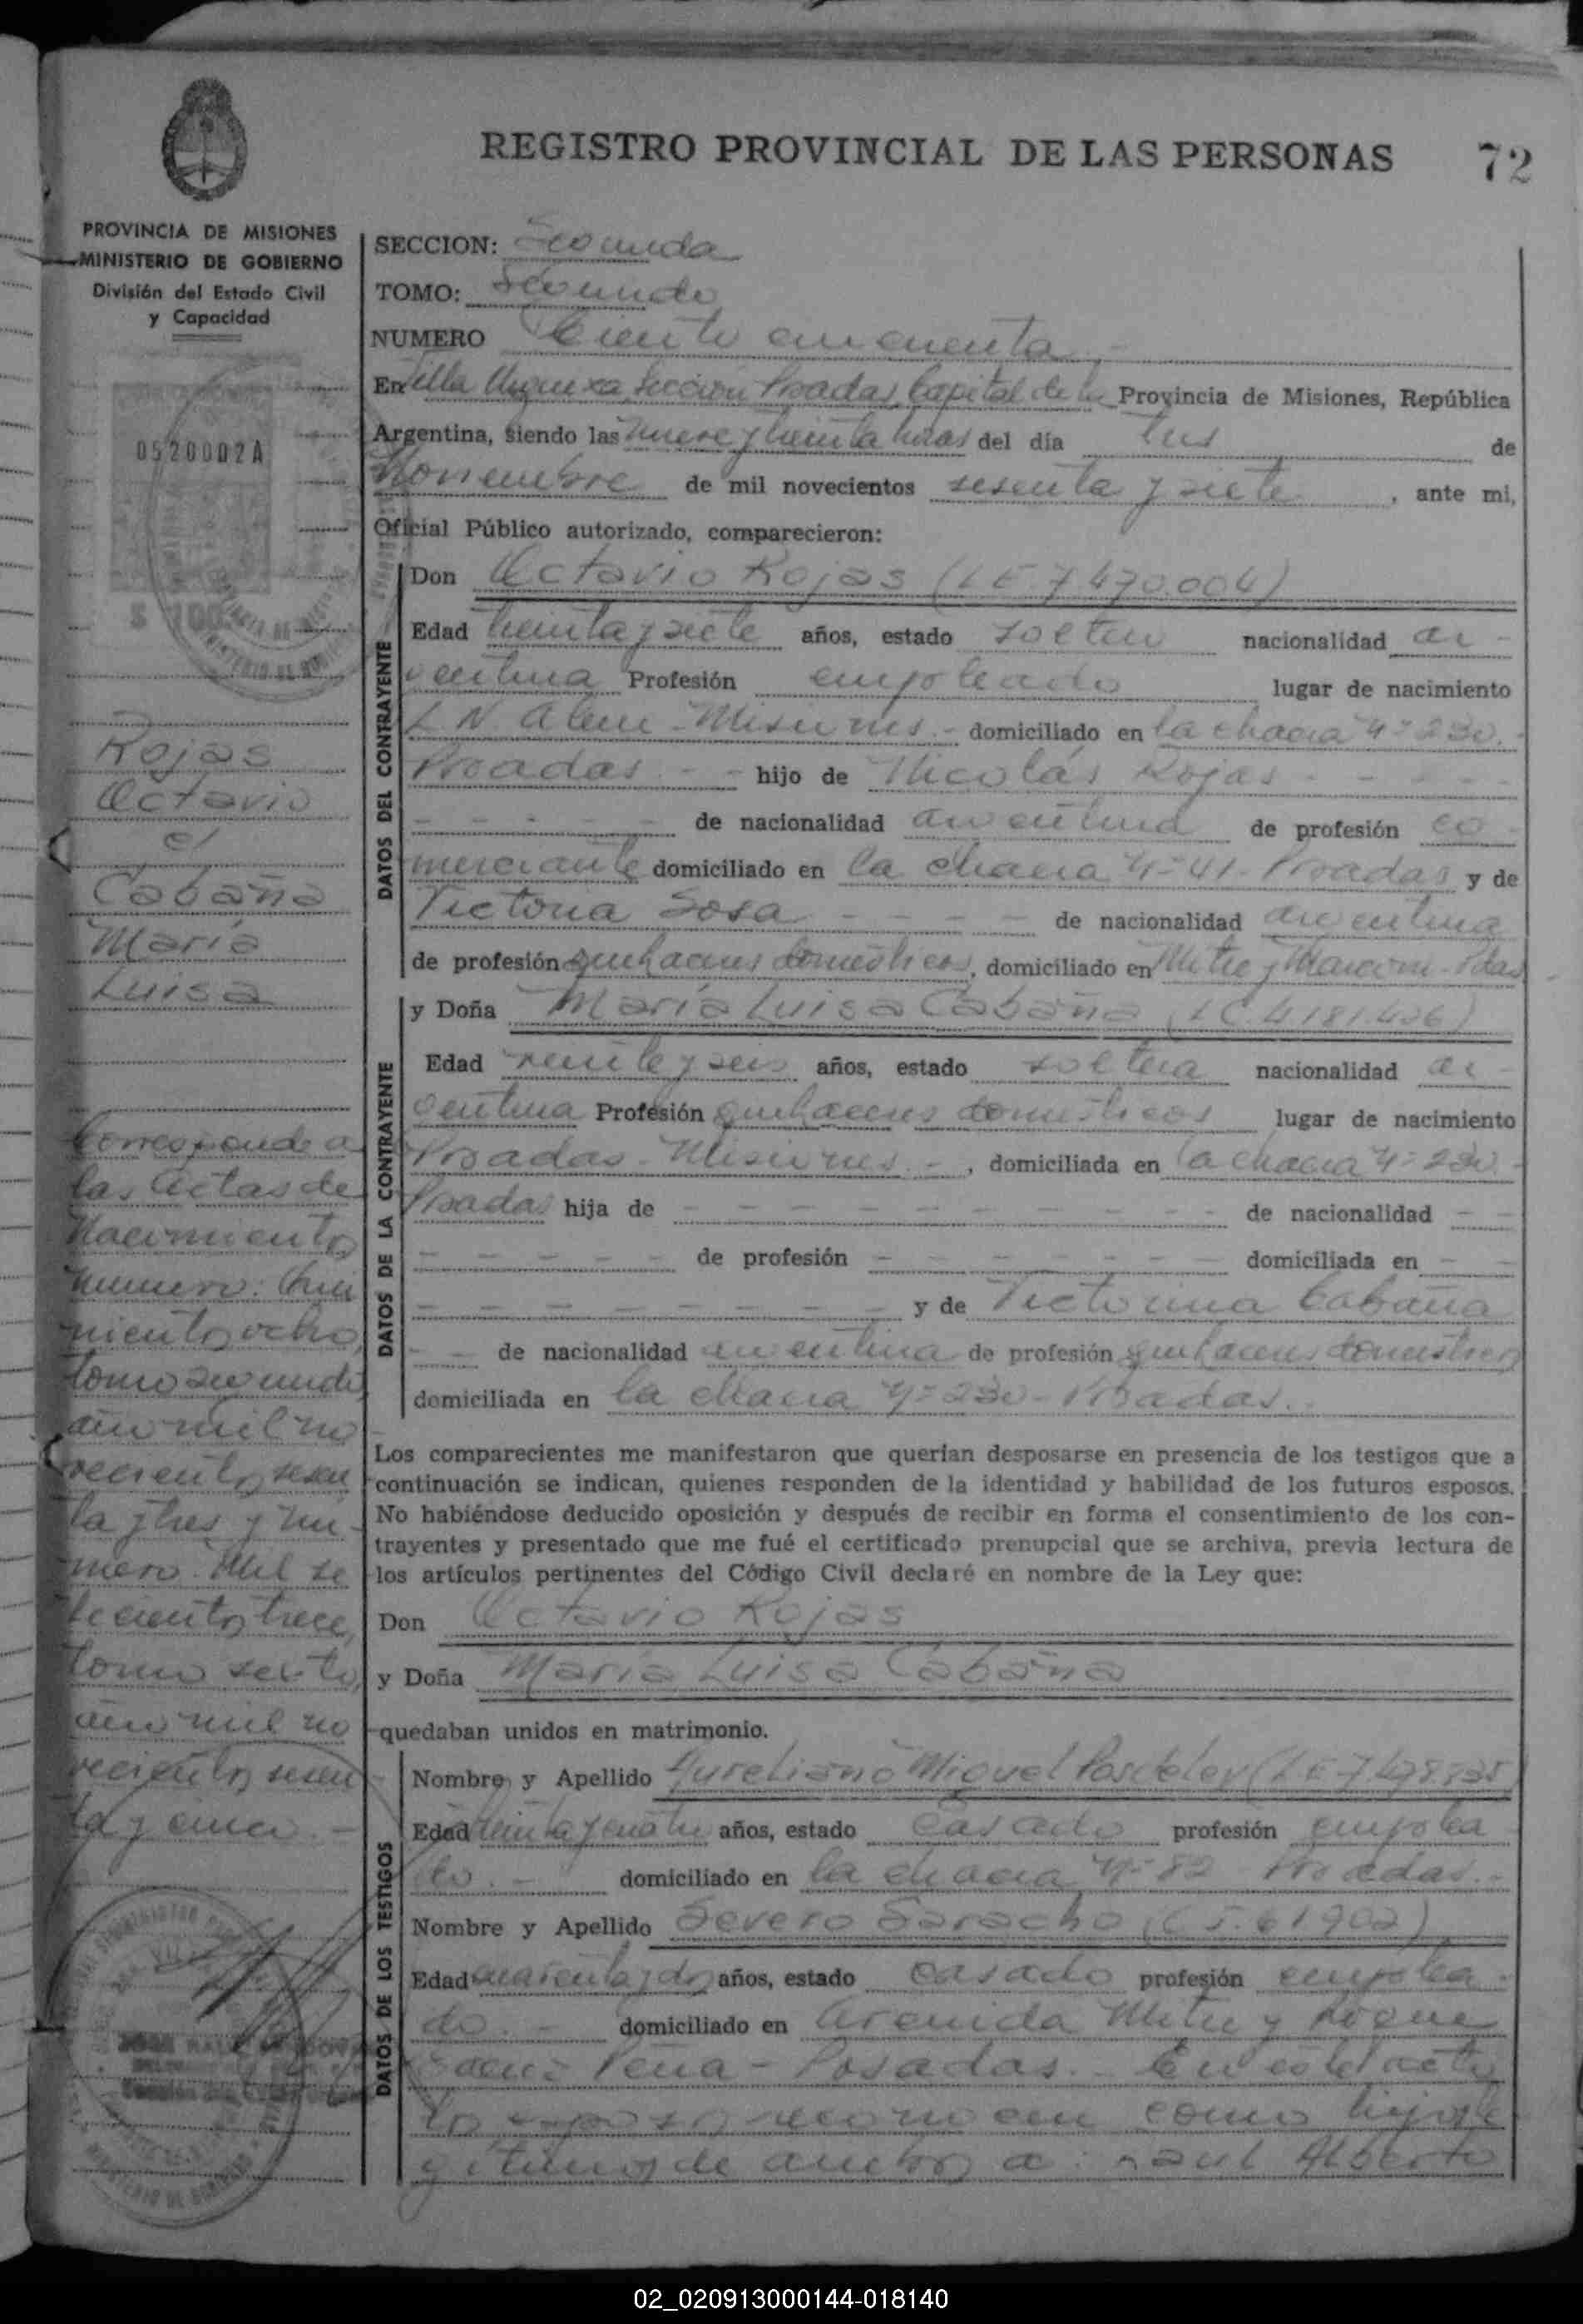 REGISTRO PROVINCIAL DE LAS PERSONAS 72
PROVINCIA DE MISIONES
MINISTERIO DE GOBIERNO
División del Estado Civil
y Capacidad
0520002A
$ 100
Rojas
Octavio
c/
Cabaña
María
Luisa
Corresponde a
las Actas de
Nacimiento
numero: Qui
nientos ocho,
tomo segundo
año mil no
vecientos sesen
ta y tres y nú-
mero: Mil se
tecientos trece,
tomo sexto,
año mil no
vecientos sesen
ta y cinco.-
SECCION: Segunda
TOMO: Segundo
NUMERO Ciento cincuenta.-
En Villa Urquiza Sección Posadas, Capital de la Provincia de Misiones, República
Argentina, siendo las nueve y treinta horas del día tres de
Noviembre de mil novecientos sesenta y siete, ante mi,
Oficial Público autorizado, comparecieron:
DATOS DEL CONTRAYENTE
Don Octavio Rojas (LE 7.470.004)
Edad treinta y siete años, estado soltero nacionalidad ar-
gentina Profesión empleado lugar de nacimiento
L.N. Alem - Misiones.- domiciliado en la chacra Nº 230.-
Posadas - - hijo de Nicolás Rojas - - - - -
- - - - - de nacionalidad argentina de profesión co-
merciante domiciliado en la chacra Nº 41 - Posadas y de
Victoria Sosa - - - - - de nacionalidad argentina
de profesión quehaceres domésticos, domiciliado en Mitre y Marconi - Pdas
DATOS DE LA CONTRAYENTE
y Doña María Luisa Cabaña (LC. 4.181.426)
Edad veinte y seis años, estado soltera nacionalidad ar-
gentina Profesión quehaceres domésticos lugar de nacimiento
Posadas - Misiones.-, domiciliada en la chacra Nº 230 -
Posadas hija de - - - - - - - - - - de nacionalidad - -
- - - - - de profesión - - - - - - domiciliada en - -
- - - - - - - - y de Victorina Cabaña
- - de nacionalidad argentina de profesión quehaceres domésticos
domiciliada en la chacra Nº 230 - Posadas.-
Los comparecientes me manifestaron que querían desposarse en presencia de los testigos que a
continuación se indican, quienes responden de la identidad y habilidad de los futuros esposos.
No habiéndose deducido oposición y después de recibir en forma el consentimiento de los con-
trayentes y presentado que me fué el certificado prenupcial que se archiva, previa lectura de
los artículos pertinentes del Código Civil declaré en nombre de la Ley que:
Don Octavio Rojas
y Doña María Luisa Cabaña
quedaban unidos en matrimonio.
DATOS DE LOS TESTIGOS
Nombre y Apellido Aureliano Miguel (LE 7.478.735)
Edad treinta y cuatro años, estado casado profesión emplea
do.- domiciliado en la chacra Nº 82 Posadas.-
Nombre y Apellido Severo Saracho (C.I. 61902)
Edad cuarenta y dos años, estado casado profesión emplea-
do.- domiciliado en Avenida Mitre y Roque
Saenz Peña - Posadas.- En este acto
los esposos reconocen como hijos le
gítimos de ambos a: Raul Alberto
02_020913000144-018140